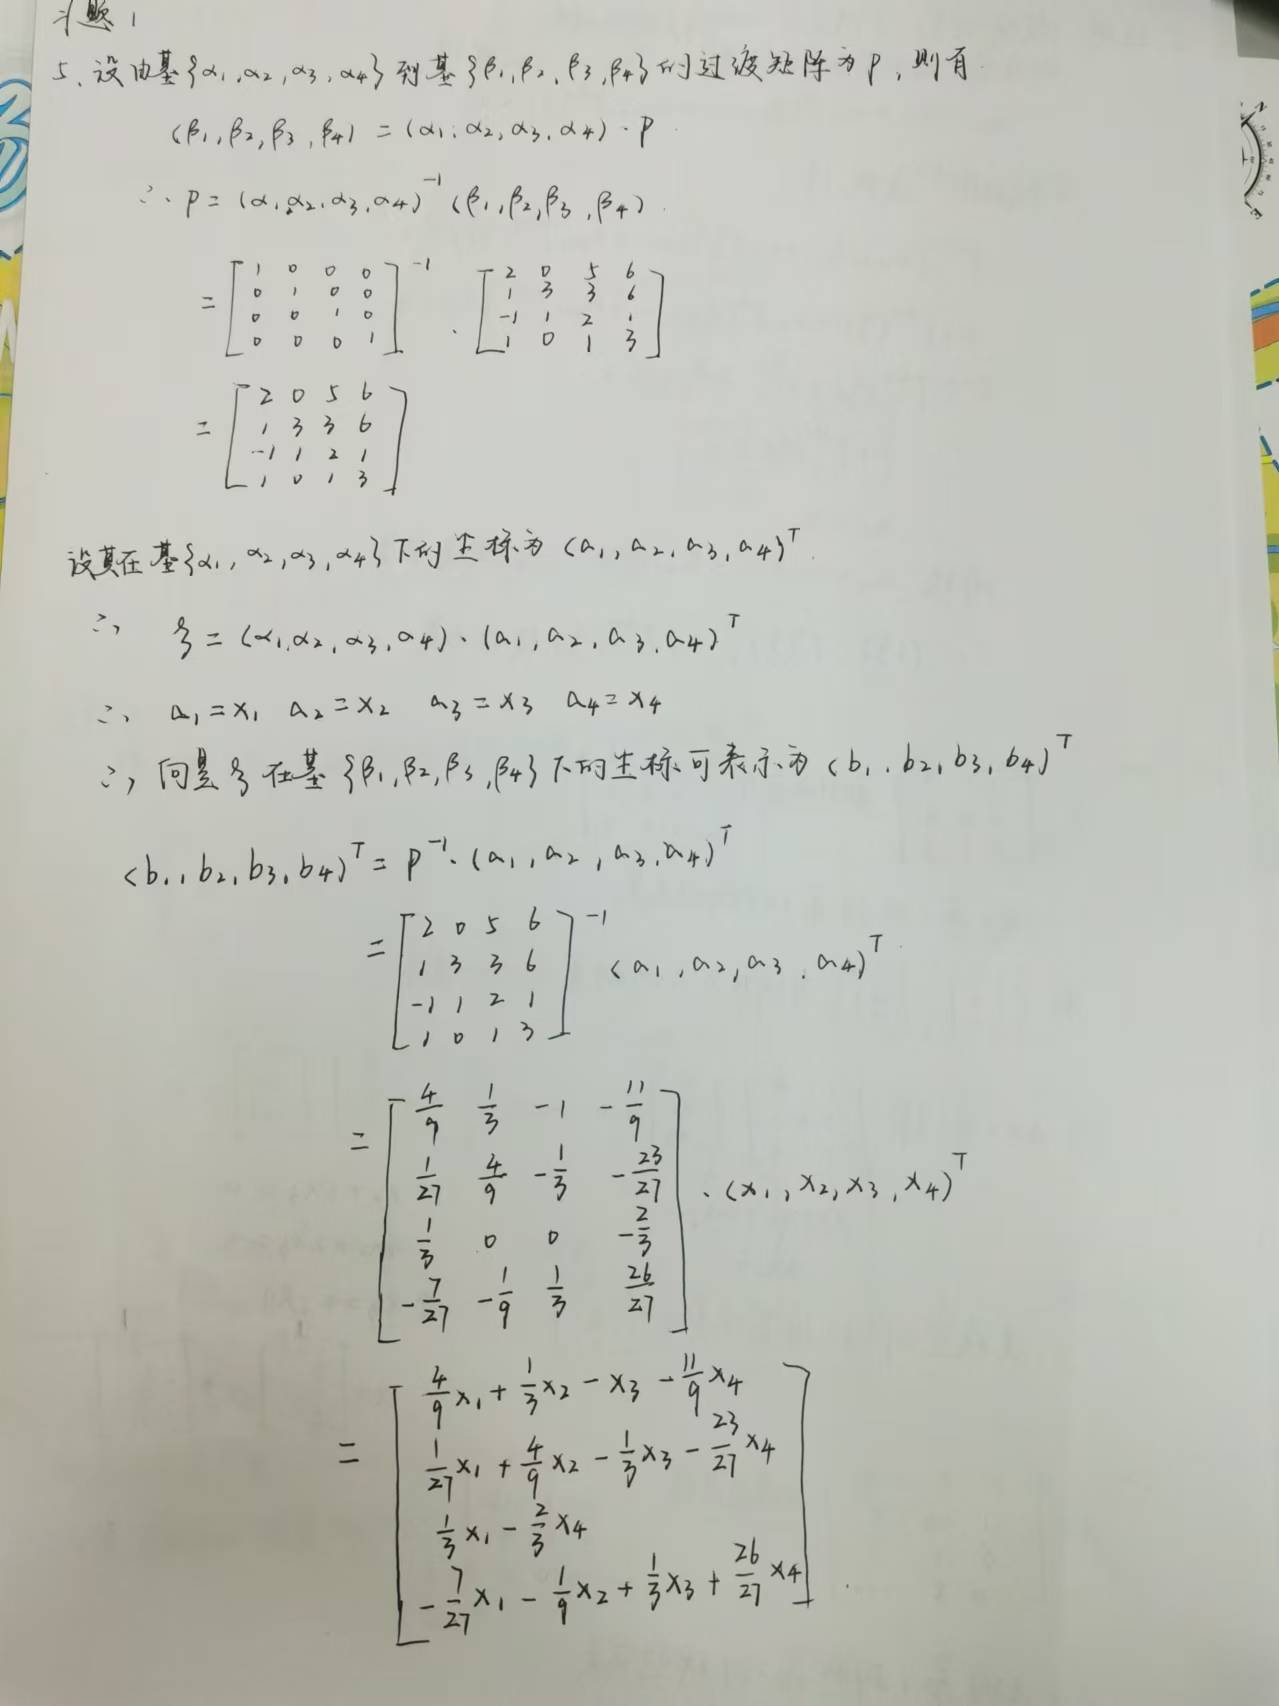 习题1
5、设由基{α₁,α₂,α₃,α₄}到基{β₁,β₂,β₃,β₄}的过渡矩阵为P,则有
(β₁,β₂,β₃,β₄) = (α₁,α₂,α₃,α₄)·P
∴ P = (α₁,α₂,α₃,α₄)⁻¹(β₁,β₂,β₃,β₄)
= [1 0 0 0; 0 1 0 0; 0 0 1 0; 0 0 0 1]⁻¹ · [2 0 5 6; 1 3 3 6; -1 1 2 1; 1 0 1 3]
= [2 0 5 6; 1 3 3 6; -1 1 2 1; 1 0 1 3]
设其在基{α₁,α₂,α₃,α₄}下的坐标为(a₁,a₂,a₃,a₄)ᵀ
∴ ξ = (α₁,α₂,α₃,α₄)·(a₁,a₂,a₃,a₄)ᵀ
∴ a₁=x₁ a₂=x₂ a₃=x₃ a₄=x₄
∴ 向量ξ在基{β₁,β₂,β₃,β₄}下的坐标可表示为(b₁,b₂,b₃,b₄)ᵀ
(b₁,b₂,b₃,b₄)ᵀ = P⁻¹·(a₁,a₂,a₃,a₄)ᵀ
= [2 0 5 6; 1 3 3 6; -1 1 2 1; 1 0 1 3]⁻¹ (a₁,a₂,a₃,a₄)ᵀ
= [4/9 1/3 -1 -11/9; 1/27 4/9 -1/3 -23/27; 1/3 0 0 -2/3; -7/27 -1/9 1/3 26/27]·(x₁,x₂,x₃,x₄)ᵀ
= [4/9x₁+1/3x₂-x₃-11/9x₄; 1/27x₁+4/9x₂-1/3x₃-23/27x₄; 1/3x₁-2/3x₄; -7/27x₁-1/9x₂+1/3x₃+26/27x₄].